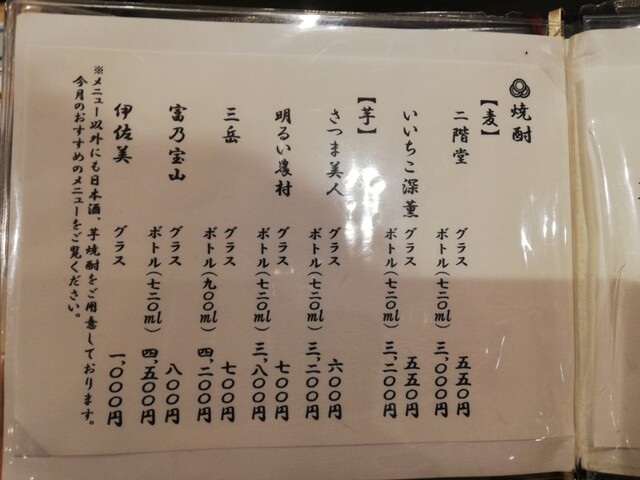 焼酎
【麦】
二階堂 グラス 五五〇円
ボトル(七二〇ml) 三、〇〇〇円
いいちこ深薫 グラス 五五〇円
ボトル(七二〇ml) 三、二〇〇円
【芋】
さつま美人 グラス 六〇〇円
ボトル(七二〇ml) 三、二〇〇円
明るい農村 グラス 七〇〇円
ボトル(七二〇ml) 三、八〇〇円
三岳 グラス 七〇〇円
ボトル(九〇〇ml) 四、二〇〇円
富乃宝山 グラス 八〇〇円
ボトル(七二〇ml) 四、五〇〇円
伊佐美 グラス 一、〇〇〇円
※メニュー以外にも日本酒、芋焼酎をご用意しております。
今月のおすすめのメニューをご覧ください。